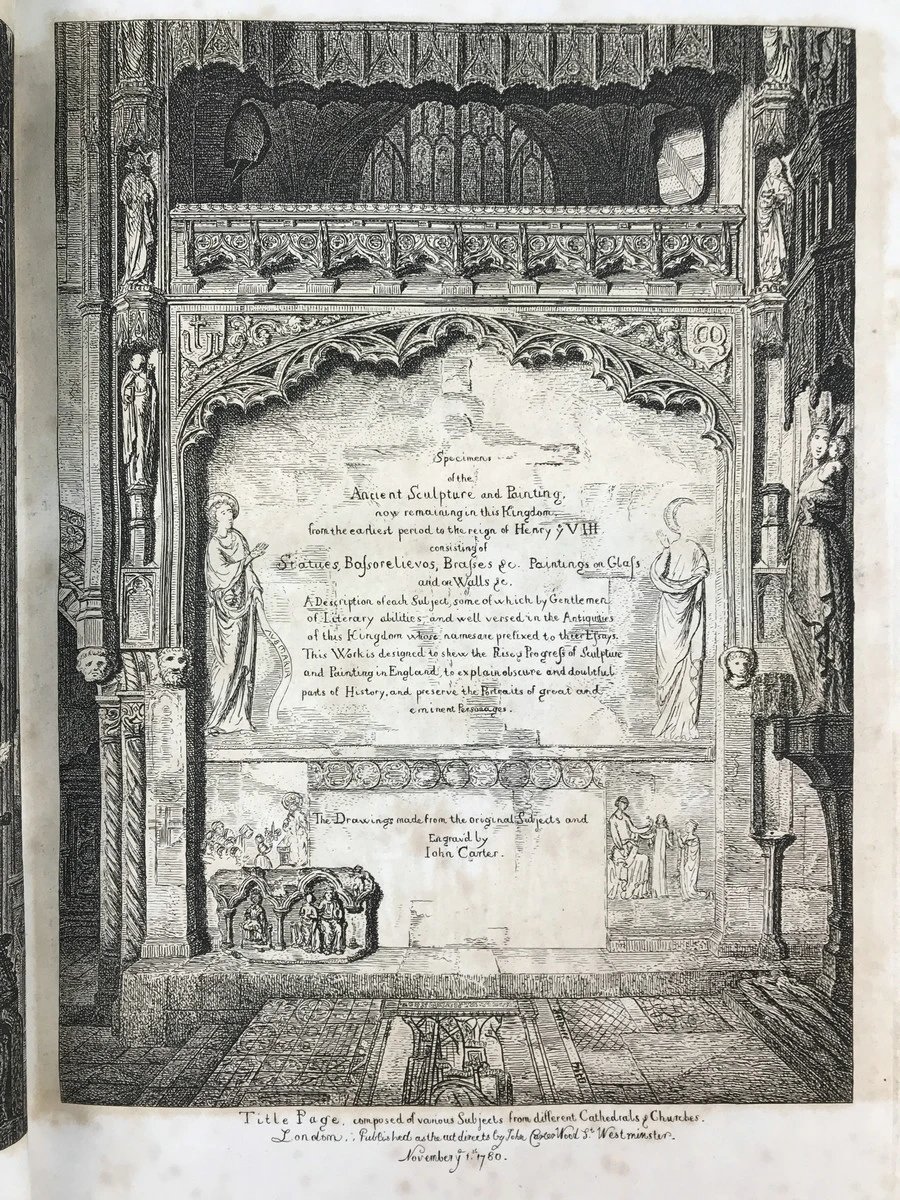 Specimens
of the
Ancient Sculpture and Painting,
now remaining in this Kingdom,
from the earliest period to the reign of Henry yͤ VIII
consisting of
Statues, Baſsorelievos, Braſses &c. Paintings on Glaſs
and on Walls &c.
A Description of each Subject, some of which by Gentlemen
of Literary abilities, and well versed in the Antiquities
of this Kingdom whose names are prefixed to their Eſsays.
This Work is designed to shew the Rise & Progreſs of Sculpture
and Painting in England, to explain obscure and doubtful
parts of History, and preserve the Portraits of great and
eminent Personages.
The Drawings made from the original Subjects and
Engrav'd by
Iohn Carter.
Title Page, composed of various Subjects from different Cathedrals & Churches.
London, Published as the act directs by John Carter Wood Sᵗ. Westminster.
November yᵉ 1.ˢᵗ 1780.